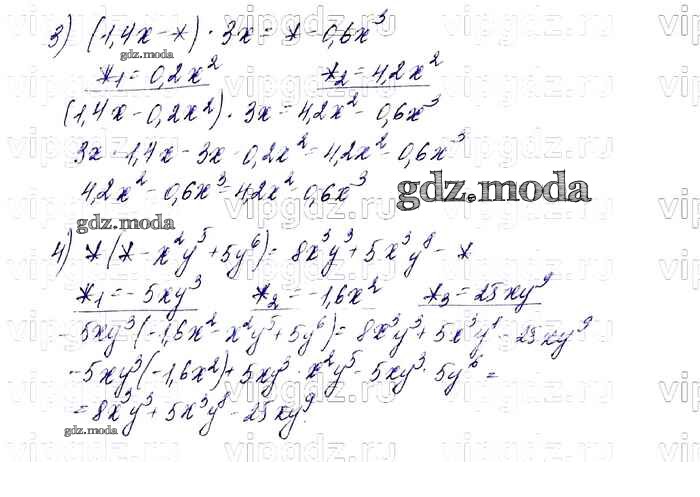 3) (1,4x - *) · 3x = * - 0,6x³
gdz.moda
*₁ = 0,2x² *₂ = 4,2x²
(1,4x - 0,2x²) · 3x = 4,2x² - 0,6x³
3x · 1,4x - 3x · 0,2x² = 4,2x² - 0,6x³
4,2x² - 0,6x³ = 4,2x² - 0,6x³
gdz.moda
gdz.moda
4) * (* - x²y⁵ + 5y⁶) = 8x³y³ + 5x³y⁸ - *
*₁ = - 5xy³ *₂ = -1,6x² *₃ = 25xy⁹
- 5xy³(-1,6x² - x²y⁵ + 5y⁶) = 8x³y³ + 5x³y⁸ - 25xy⁹
- 5xy³(-1,6x²) + 5xy³ · x²y⁵ - 5xy³ · 5y⁶ =
= 8x³y³ + 5x³y⁸ - 25xy⁹.
gdz.moda
vipgdz.ru